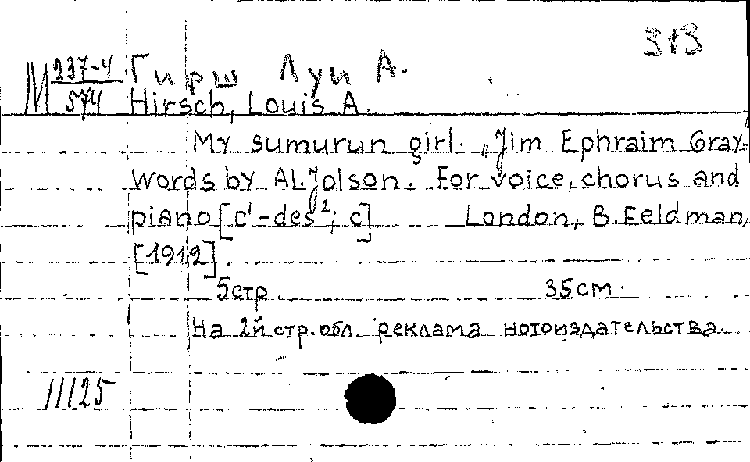 313
M 237-4/574 Гирш Луи А.
Hirsch, Louis A.
My sumurun girl. „Jim Ephraim Gray.
Words by Al Jolson. For voice, chorus and
piano [c¹-des²; c] London, B. Feldman,
[1912].
5стр. 35cm.
На 2й стр. обл. реклама нотоиздательства.
11125